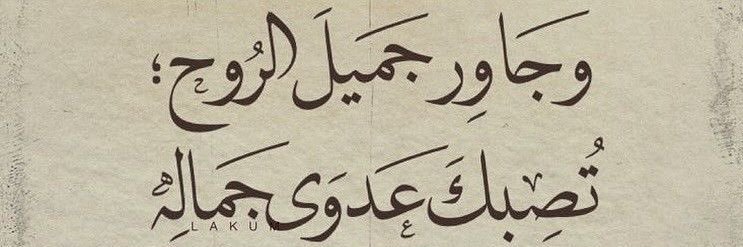 وَجَاوِر جَميلَ الرُوح؛
تُصِبكَ عَدوَى جَمالِهِ
LAKUM